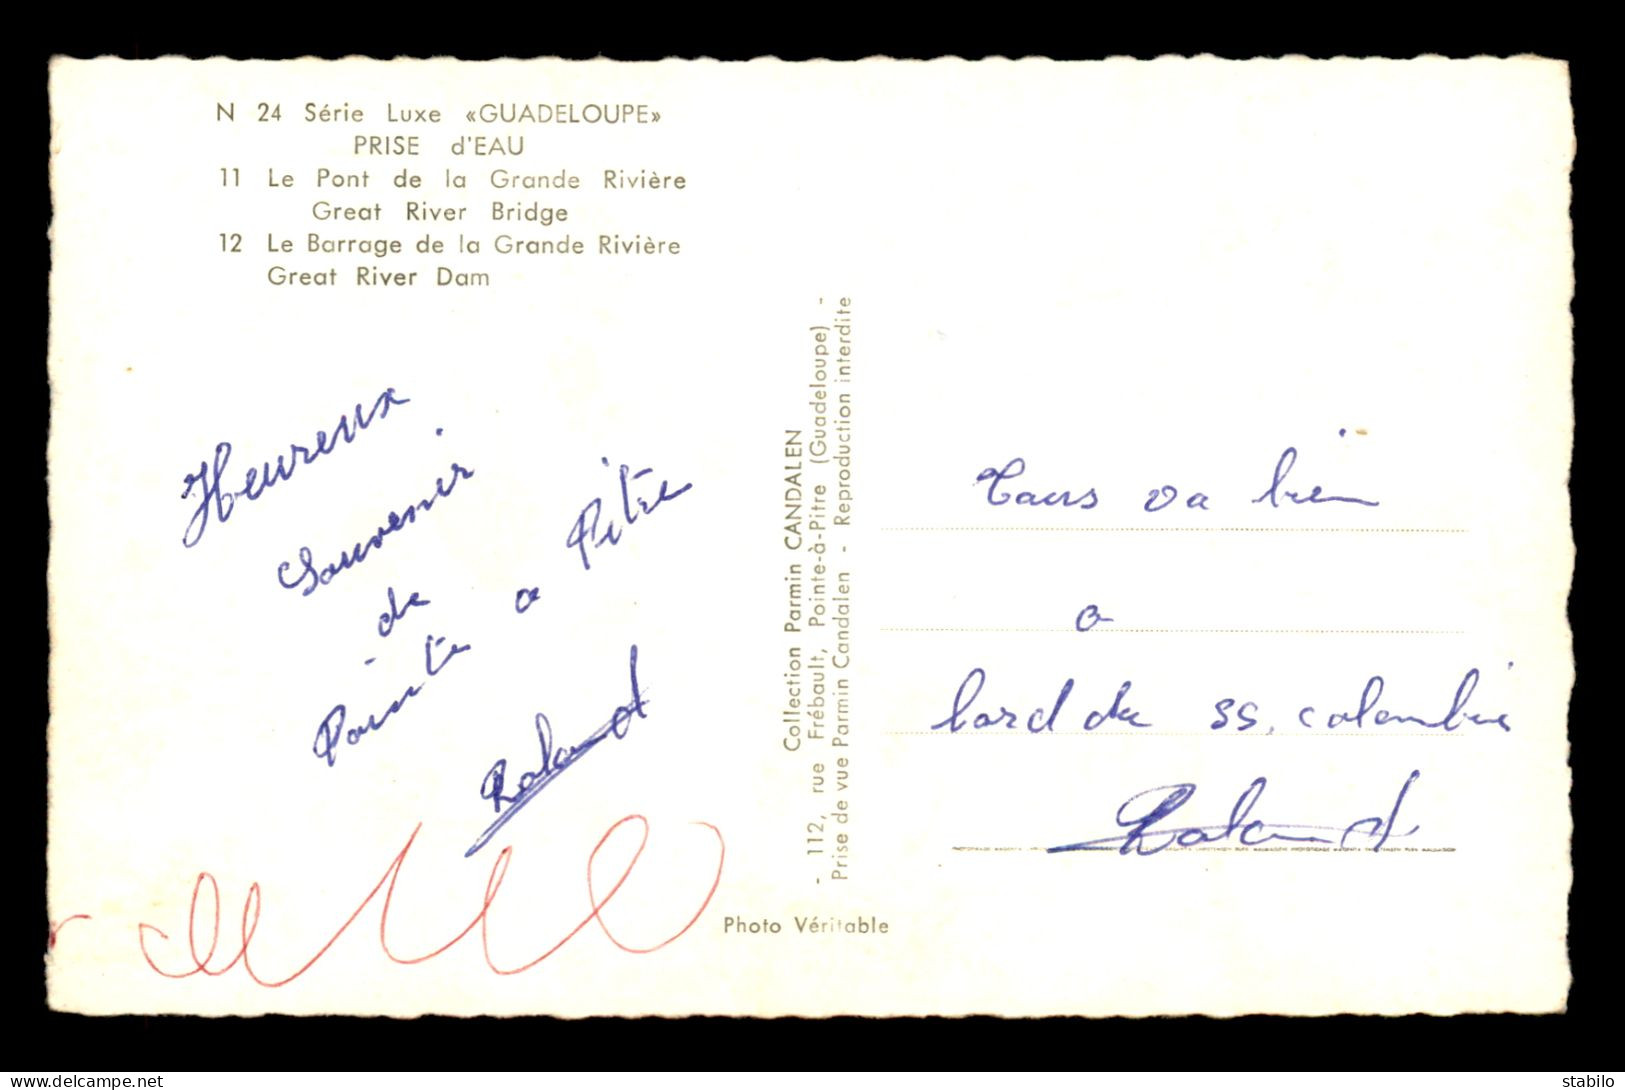 N 24 Série Luxe «GUADELOUPE»
PRISE d'EAU
11 Le Pont de la Grande Rivière
Great River Bridge
12 Le Barrage de la Grande Rivière
Great River Dam
Heureux
Souvenir
de
Pointe a Pitre
Roland
Collection Parmin CANDALEN
- 112, rue Frébault, Pointe-à-Pitre (Guadeloupe) -
Prise de vue Parmin Candalen - Reproduction interdite
Photo Véritable
Tous va bien
a
bord du ss. colombie
Roland
delcampe.net
stabilo